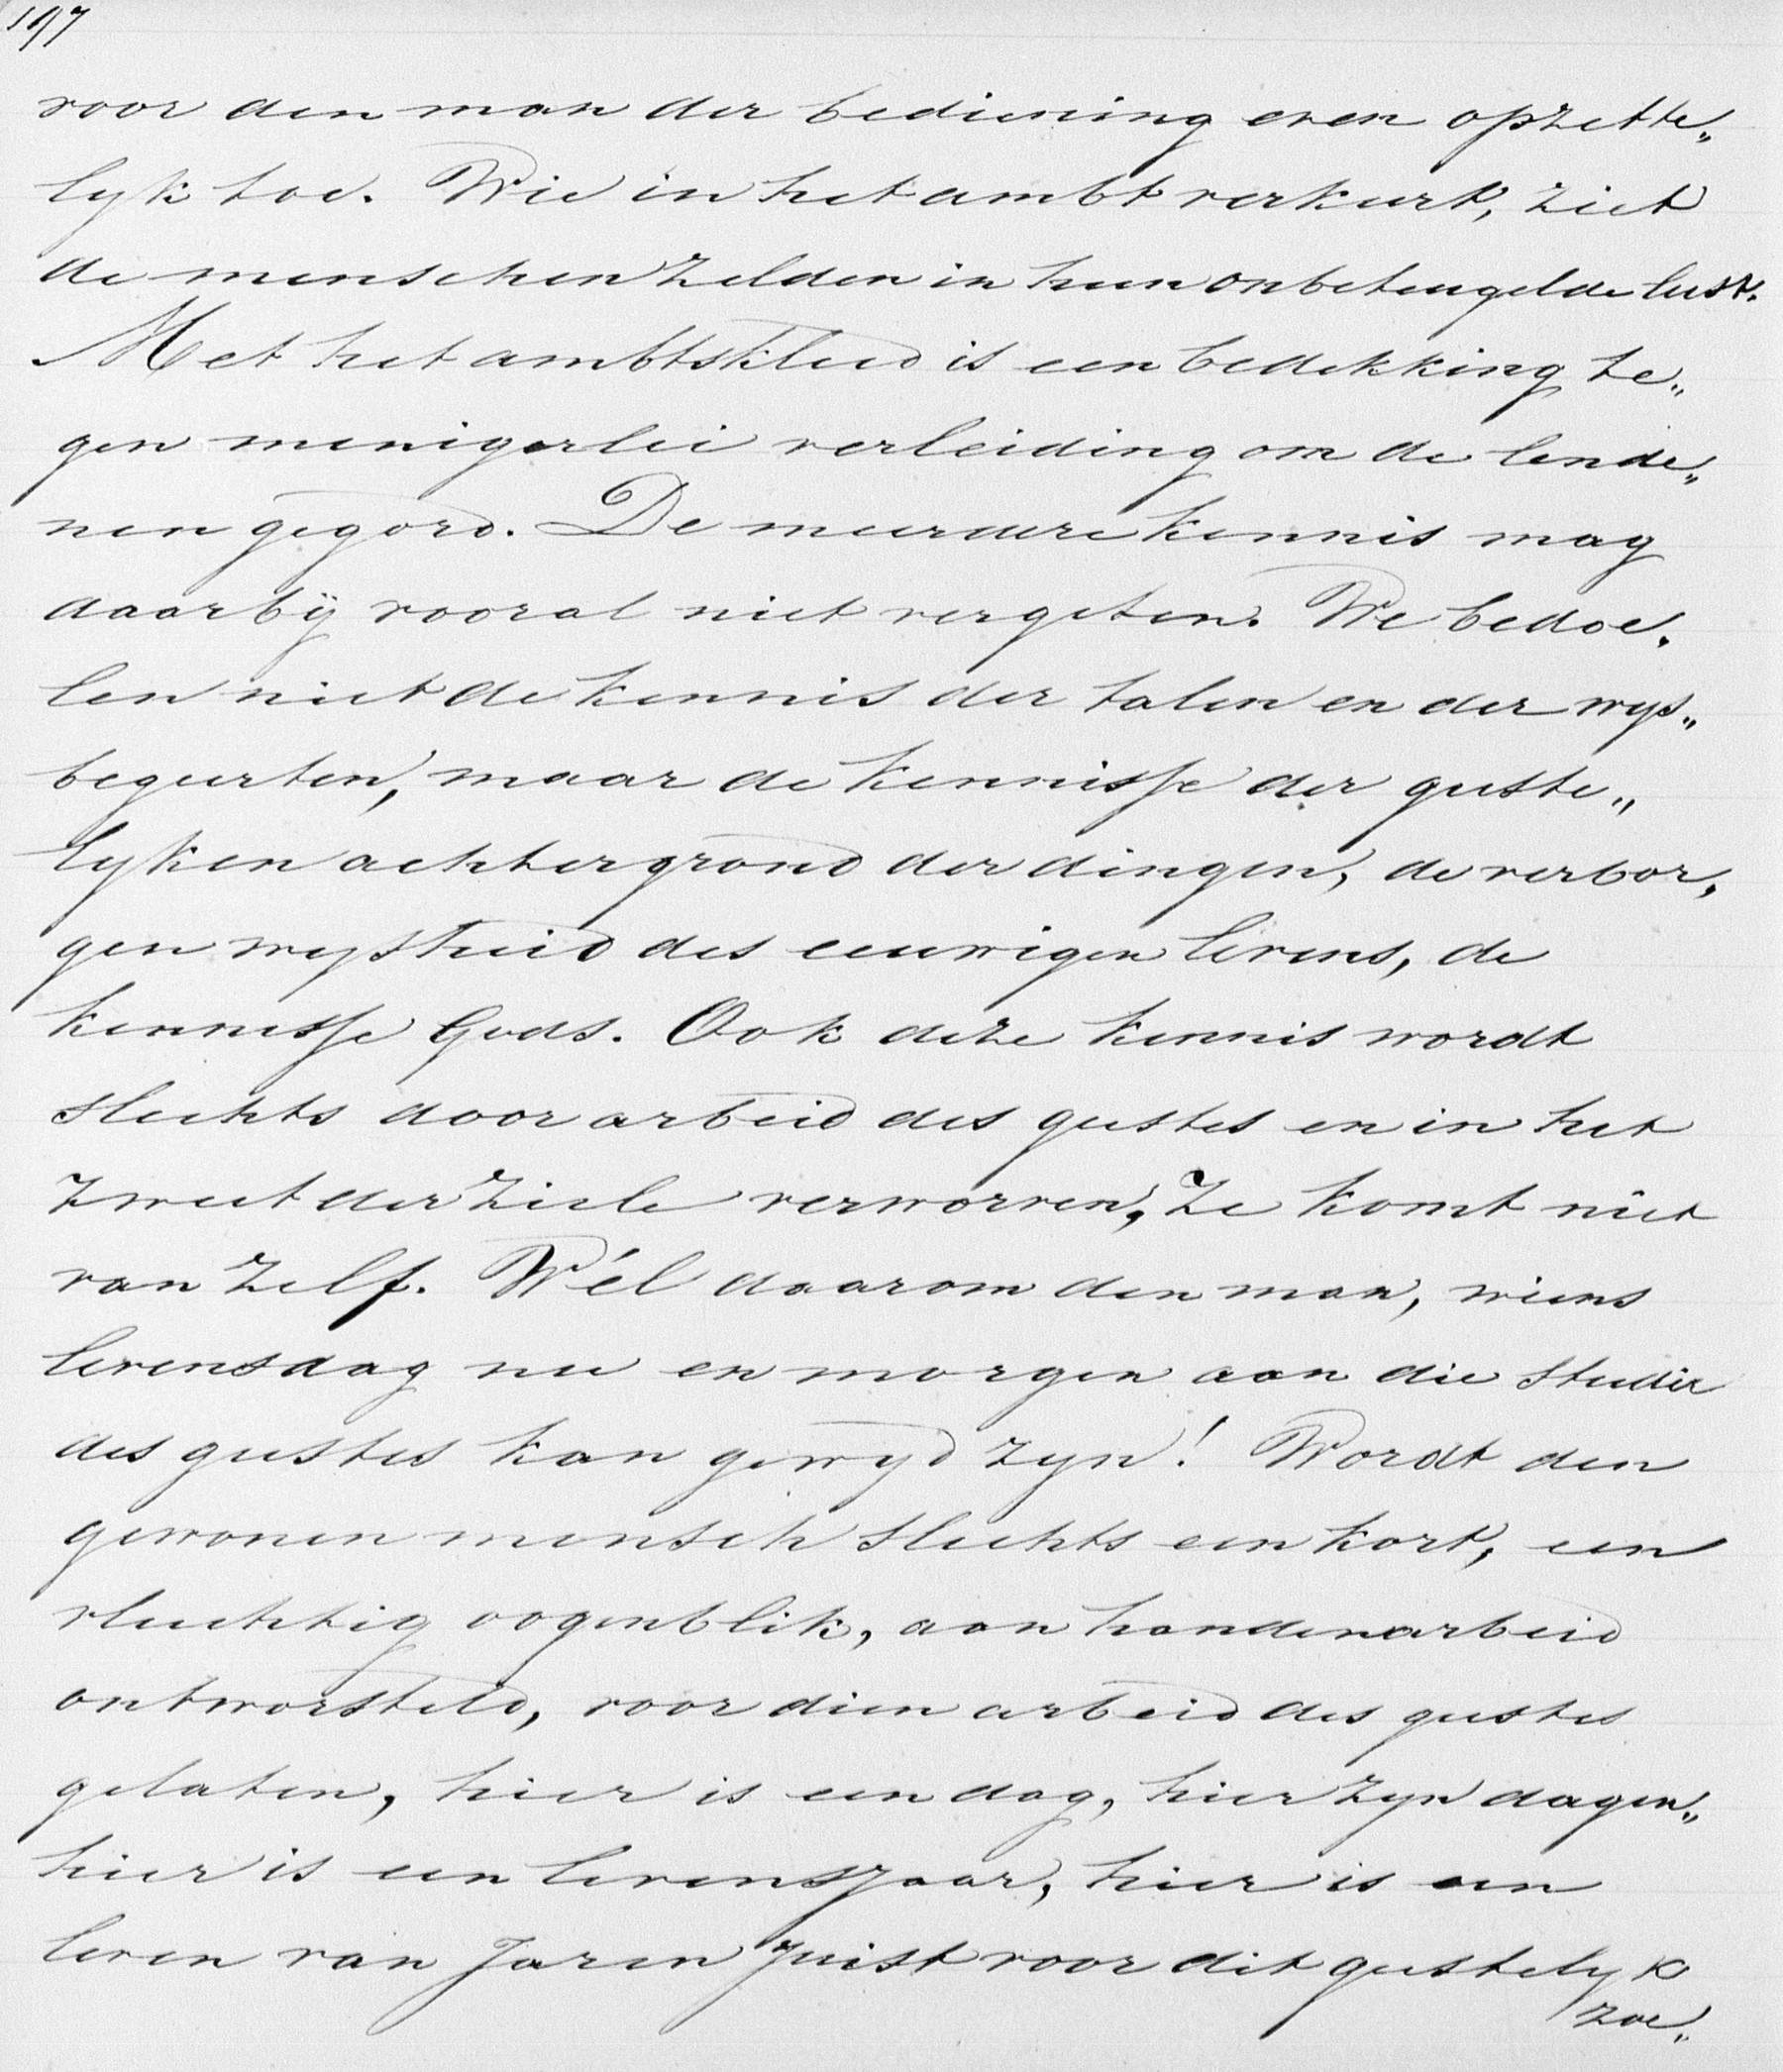 197
voor den man der bediening even opzette„
lyk toe. Wie in het ambt verkeert, ziet
de menschen zelden in hun onbeteugelde lust.
Met het ambtskleed is een bedekking te„
gen menigerlei verleiding om de lende„
nen gegord. De meerdere kennis mag
daarbÿ vooral niet vergeten. We bedoe„
len niet de kennis der talen en der wys„
begeerten, maar de kennisse der geeste„
lyken achtergrond der dingen, de verbor„
gen wysheid des eeuwigen levens, de
kennisse Gods. Ook deze kennis wordt
slechts door arbeid des geestes en in het
zweet der ziele verworven, Ze komt niet
van zelf. Wél daarom den man, wiens
levensdag nu en morgen aan die studie
des geestes kan gewyd zyn! Wordt den
gewonen mensch slechts een kort, een
vluchtig oogenblik, aan handenarbeid
ontworsteld, voor dien arbeid des geestes
gelaten, hier is een dag, hier zyn dagen„
hier is een levensjaar, hier is een
leven van Jaren juist voor dit geestelyk
zoe„